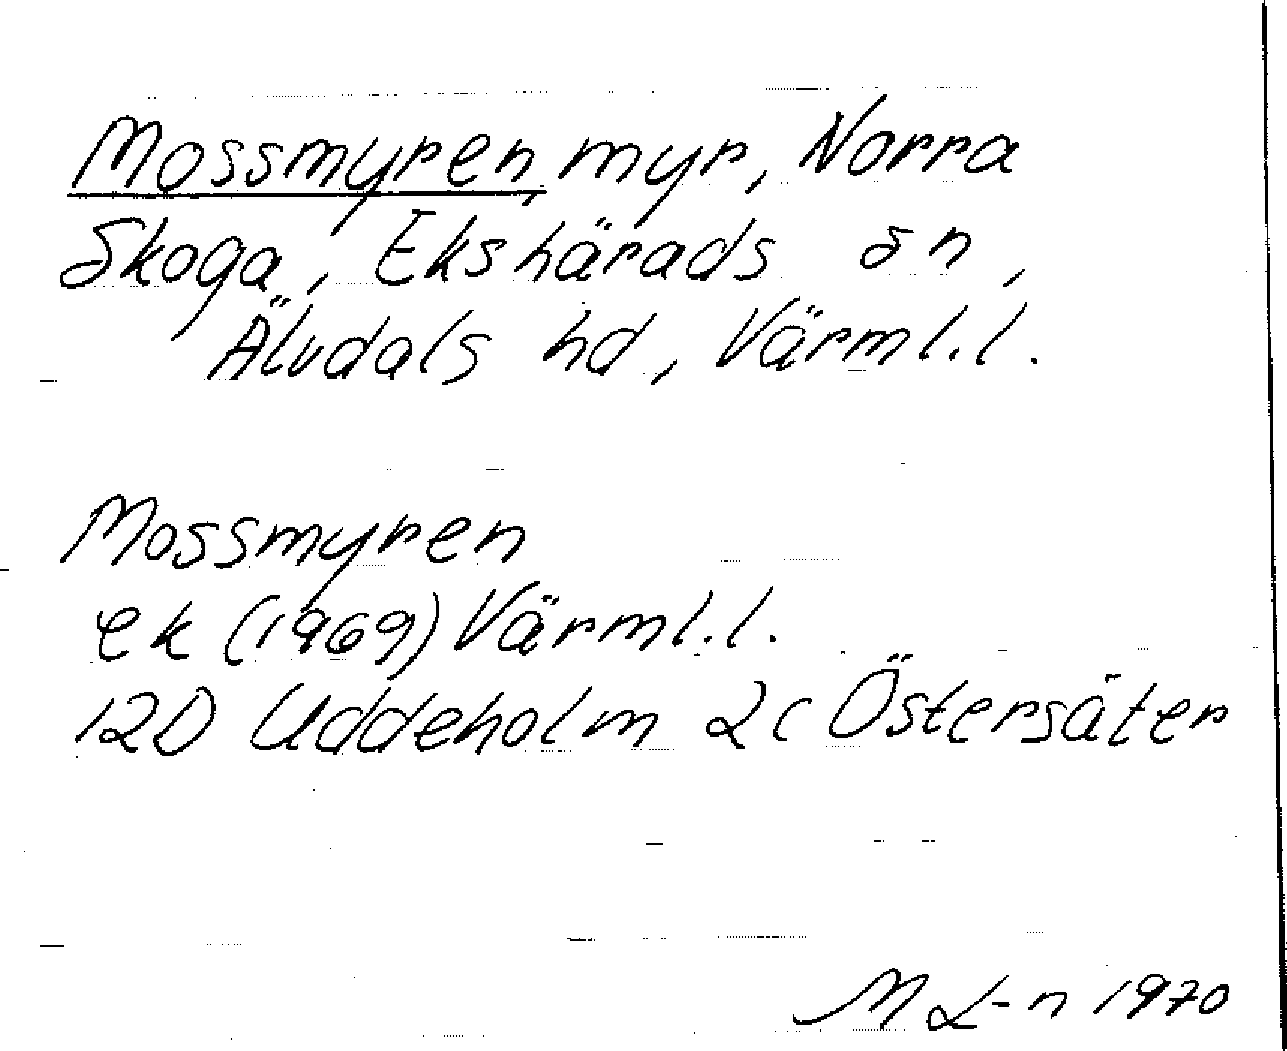 Mossmyren, myr, Norra
Skoga, Ekshärads sn,
Älvdals hd, Värml.l.
Mossmyren
ek (1969) Värml.l.
12D Uddeholm 2c Östersäter
M L-n 1970